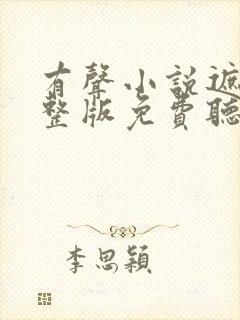 有聲小說遮
整版免費聽
李思穎